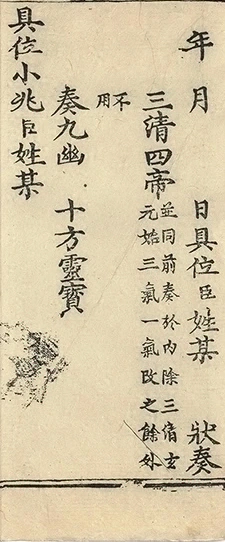 年月 日具位臣姓某 狀奏
三清四帝 並同前奏於内除三清玄
元始三氣一氣改之餘外
不用
奏九幽 十方靈寶
具位小兆臣姓某